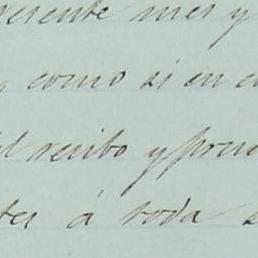 presente mes y
como si en
el recibo y
tes á toda